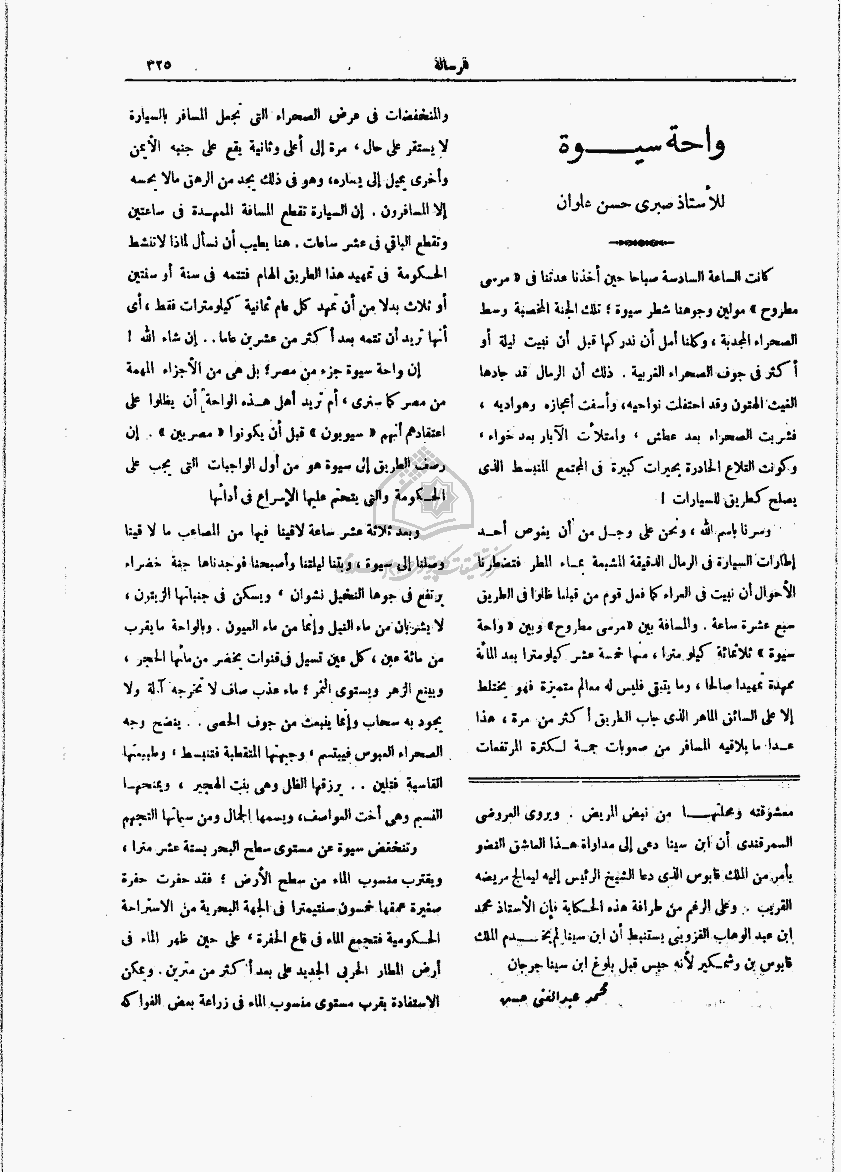 ٣٢٥
الرسالة
واحة سيوة
للأستاذ صبرى حسن علوان
كانت الساعة السادسة صباحا حين أخذنا عدتنا فى « مرسى
مطروح » مولين وجوهنا شطر سيوة ؛ تلك الجنة المخصبة وسط
الصحراء المجدبة ، وكلنا أمل أن ندركها قبل أن نبيت ليلة أو
أكثر فى جوف الصحراء الغربية . ذلك أن الرمال قد جادها
الغيث الهتون وقد احتفلت نواحيه، وأسفت أعجازه وهواديه ،
فشربت الصحراء بعد عطش ، وامتلأت الآبار بعد خواء ،
وكونت التلاع الحادرة بحيرات كبيرة فى المجتمع المنبسط الذى
يصلح كطريق للسيارات !
وسرنا باسم الله ، ونحن على وجل من أن يغوص أحد
إطارات السيارة فى الرمال الدقيقة المشبعة بماء المطر فتضطرنا
الأحوال أن نبيت فى العراء كما فعل قوم من قبلنا ظلوا فى الطريق
سبع عشرة ساعة . والمسافة بين «مرسى مطروح» وبين « واحة
سيوة » ثلاثمائة كيلو مترا ، منها خمسة عشر كيلومترا بعد المائة
ممهدة تمهيدا صالحا ، وما يتبقى فليس له معالم متميزة فهو يختلط
إلا على السائق الماهر الذى جاب الطريق أكثر من مرة ، هذا
عدا ما يلاقيه المسافر من صعوبات جمة لكثرة المرتفعات
معشوقته ومحلتها من نبض المريض . ويروى العروضى
السمرقندى أن ابن سينا دعى إلى مداواة هذا العاشق النضو
بأمر من الملك قابوس الذى دعا الشيخ الرئيس إليه ليعالج مريضه
القريب . وعلى الرغم من طرافة هذه الحكاية فإن الأستاذ محمد
ابن عبد الوهاب القزوينى يستنبط أن ابن سينا لم يخدم الملك
قابوس بن وشمكير لأنه حبس قبل بلوغ ابن سينا جرجان
محمد عبد الغنى حسن
والمنخفضات فى عرض الصحراء التى تجعل المسافر بالسيارة
لا يستقر على حال ، مرة إلى أعلى وثانية يقع على جنبه الأيمن
وأخرى يميل إلى يساره، وهو فى ذلك يجد من الرهق مالا يحسه
إلا المسافرون . إن السيارة تقطع المسافة الممهدة فى ساعتين
وتقطع الباقى فى عشر ساعات . هنا يطيب أن نسأل لماذا لا تنشط
الحكومة فى تمهيد هذا الطريق الهام فتتمه فى سنة أو سنتين
أو ثلاث بدلا من أن تمهد كل عام ثمانية كيلومترات فقط ، أى
أنها تريد أن تتمه بعد أكثر من عشرين عاما.. إن شاء الله !
إن واحة سيوة جزء من مصر؛ بل هى من الأجزاء المهمة
من مصر كما سنرى ، أم تريد أهل هذه الواحة أن يظلوا على
اعتقادهم أنهم « سيويون » قبل أن يكونوا « مصريين » . إن
رصف الطريق إلى سيوة هو من أول الواجبات التى يجب على
الحكومة والتى يتحتم عليها الإسراع فى أدائها
وبعد ثلاثة عشر ساعة لاقينا فيها من المصاعب ما لاقينا
وصلنا إلى سيوة ، وبتنا ليلتنا وأصبحنا فوجدناها جنة خضراء
يرتفع فى جوها النخيل نشوان ، ويسكن فى جنباتها الزيتون ،
لا يشربان من ماء النيل وإنما من ماء العيون . وبالواحة ما يقرب
من مائة عين ، كل عين تسيل فى قنوات يخضر من مائها الحجر ،
ويينع الزهر ويستوى الثمر ؛ ماء عذب صاف لا تخرجه آلة ولا
يجود به سحاب وإنما ينبعث من جوف الحصى . . ينضح وجه
الصحراء العبوس فيبتسم ، وجبهتها المتقطبة فتنبسط ، وطبيعتها
القاسية فتلين . . يرزقها الظل وهى بنت الهجير ، ويمنحها
النسيم وهى أخت العواصف، ويسمها الجمال ومن سماتها التجهم
وتنخفض سيوة عن مستوى سطح البحر بستة عشر مترا ،
ويقترب منسوب الماء من سطح الأرض ؛ فقد حفرت حفرة
صغيرة عمقها خمسون سنتيمترا فى الجهة البحرية من الاستراحة
الحكومية فتجمع الماء فى قاع الحفرة ، على حين ظهر الماء فى
أرض المطار الحربى الجديد على بعد أكثر من مترين . ويمكن
الاستفادة بقرب مستوى منسوب الماء فى زراعة بعض الفواكه